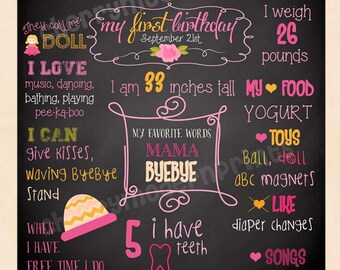 They call me
DOLL
I LOVE
music, dancing,
bathing, playing
pee-ka-boo
I CAN
give kisses,
waving BYeBYe
stand
WHEN
I HAVE
FREE TIME I DO
my first birthday
September 21st
I am 33 inches tall
MY FAVORITE WORDS
MAMA
BYEBYE
5 i have
teeth
I weigh
26
pounds
MY FOOD
YOGURT
TOYS
Ball, doll
aBC magnets
LIKE
diaper changes
SONGS